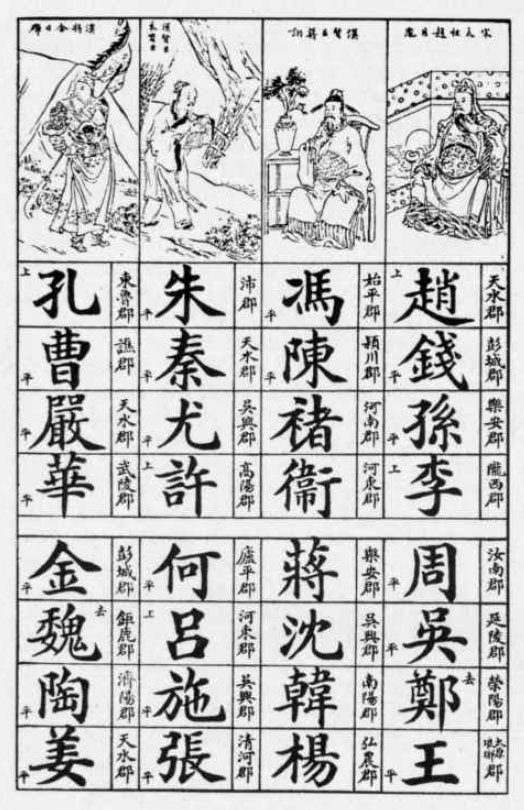 宋太祖趙匡胤
漢賢臣蔣詡
漢賢臣朱買臣
漢將金日磾
天水郡 趙 上
彭城郡 錢 平
樂安郡 孫 平
隴西郡 李 上
汝南郡 周 平
延陵郡 吳 平
滎陽郡 鄭 去
太原 瑯琊郡 王 平
始平郡 馮 平
潁川郡 陳 平
河南郡 褚
河東郡 衞
樂安郡 蔣
吳興郡 沈
南陽郡 韓
弘農郡 楊
沛郡 朱 平
天水郡 秦 平
吳興郡 尤 平
高陽郡 許 上
廬平郡 何 平
河東郡 呂 上
吳興郡 施 平
清河郡 張 平
東魯郡 孔 上
譙郡 曹 平
天水郡 嚴 平
武陵郡 華 平
彭城郡 金 平
鉅鹿郡 魏 去
濟陽郡 陶 平
天水郡 姜 平